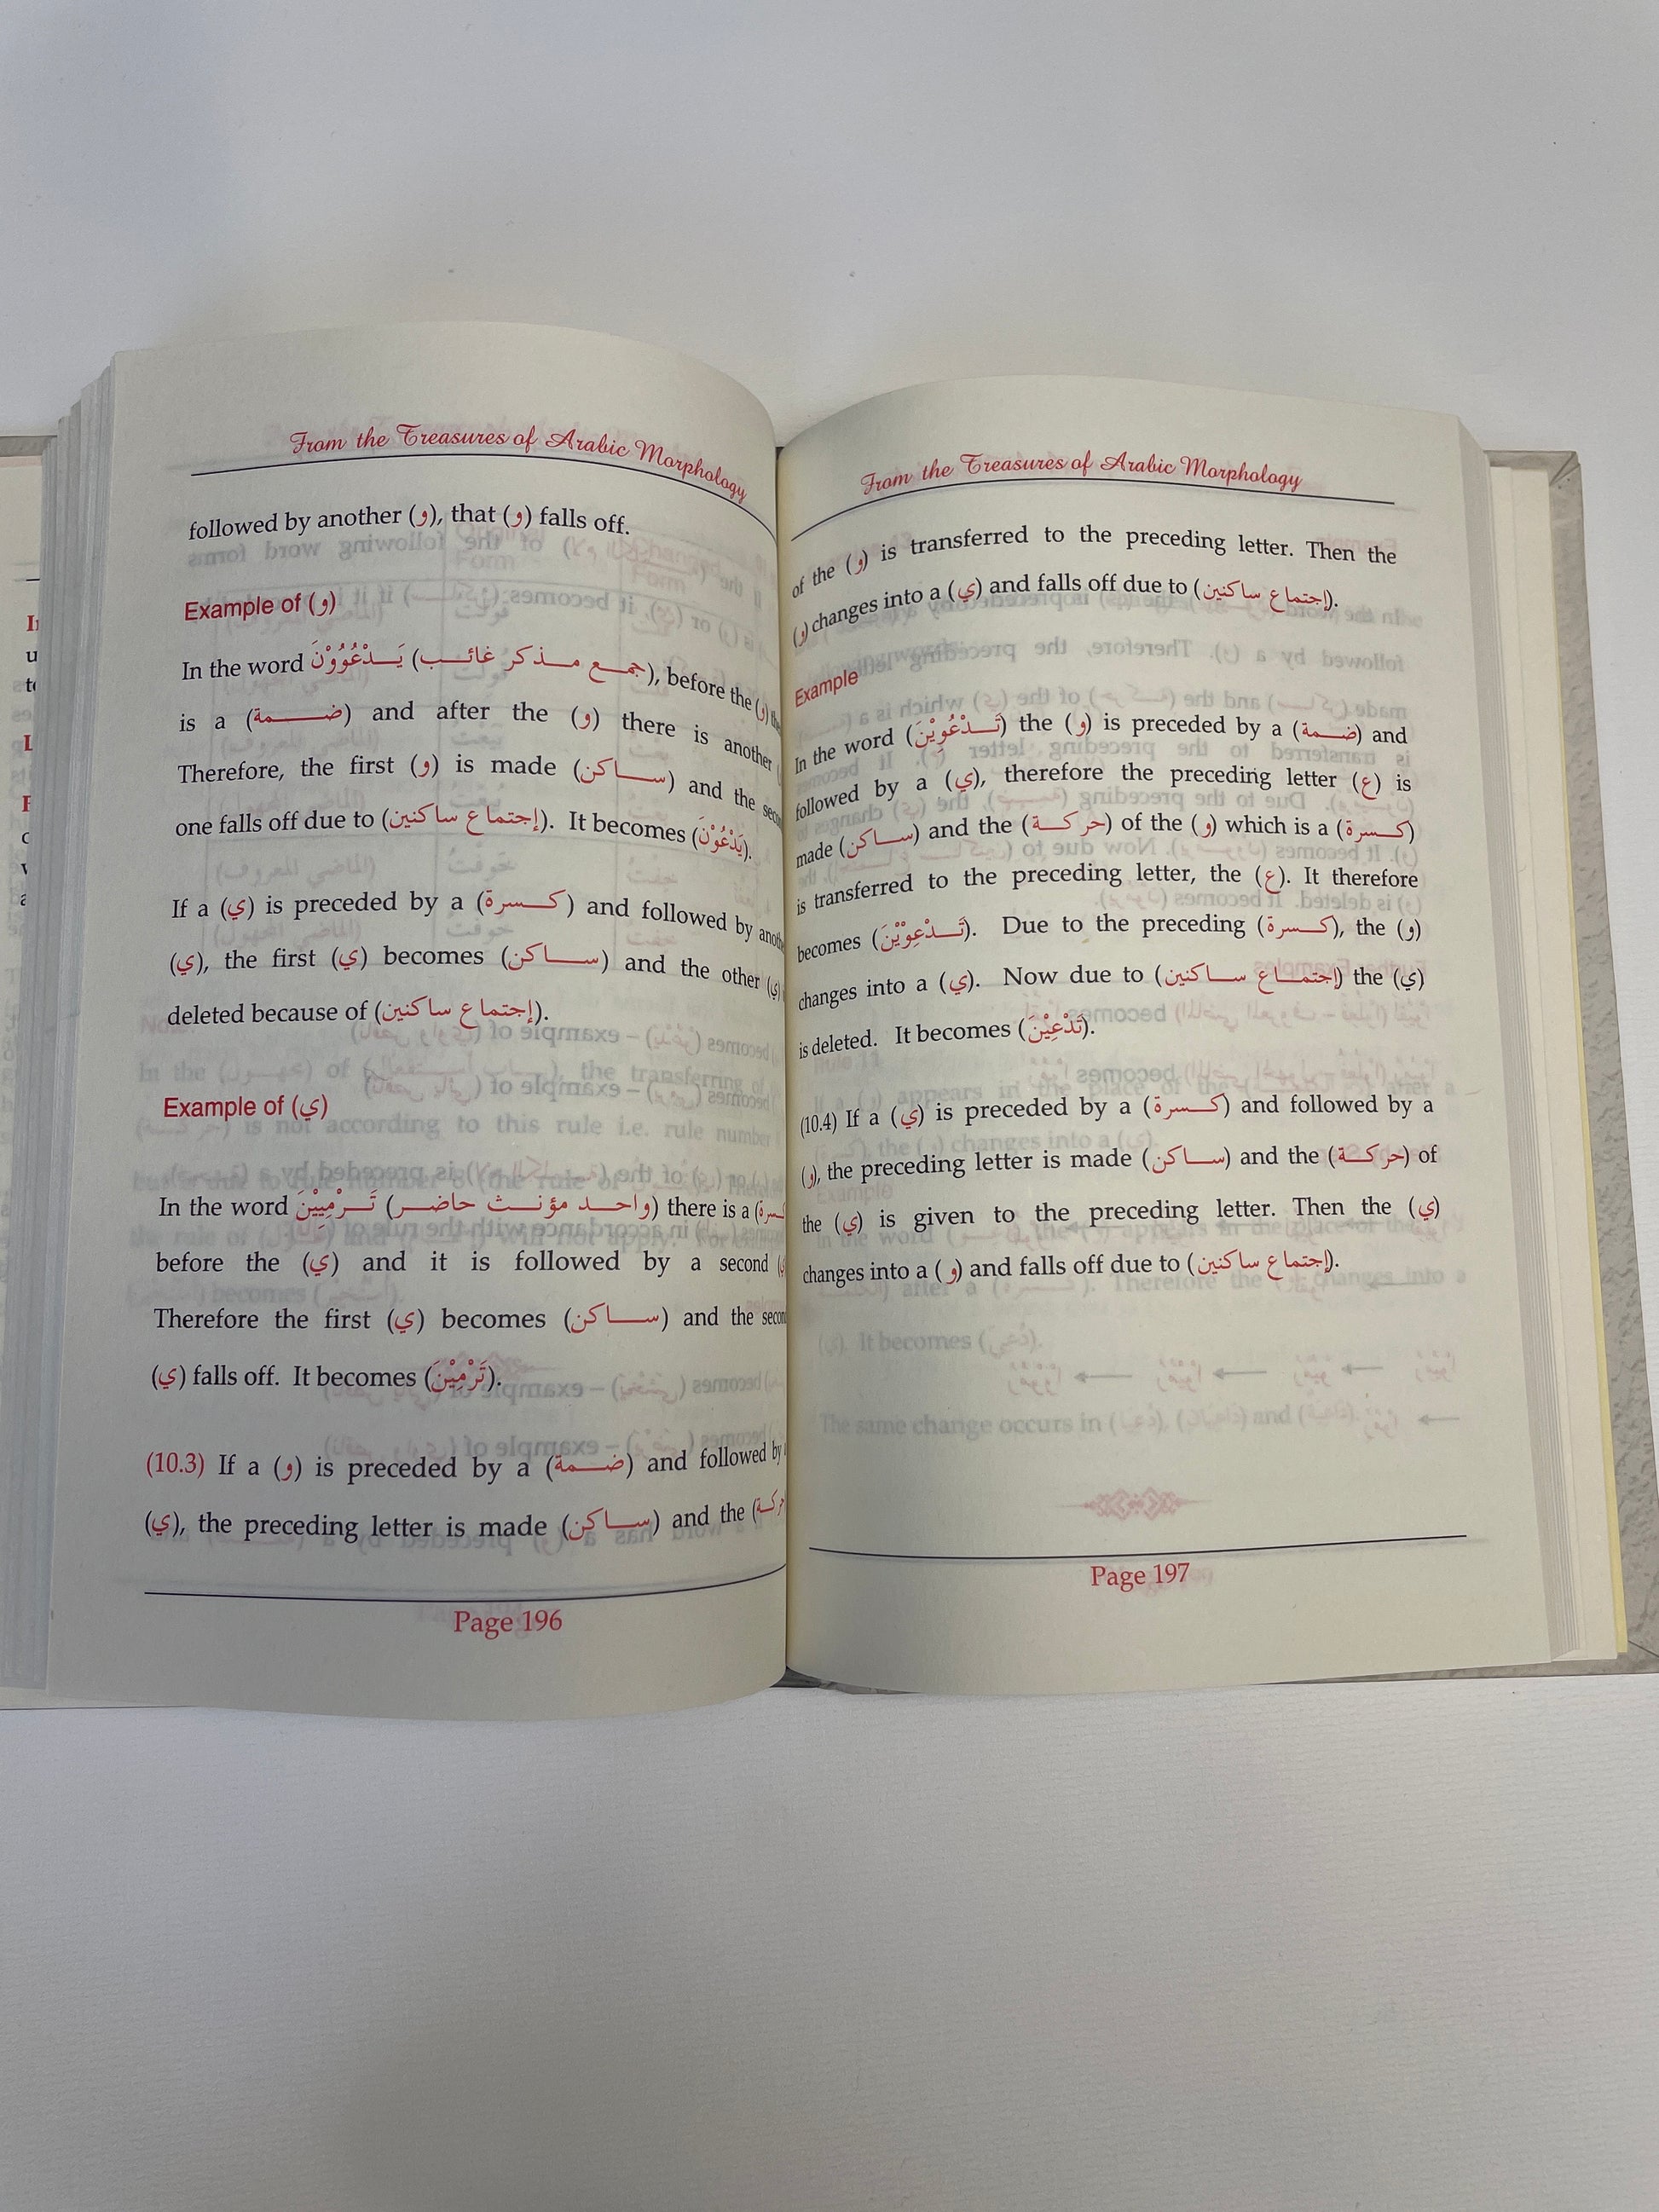 From the Treasures of Arabic Morphology
followed by another (و), that (و) falls off.
Example of (و)
In the word يَـدْعُوُوْنَ (جمـع مـذكر غائـب), before the (و)
is a (ضـمة) and after the (و) there is another
Therefore, the first (و) is made (ساكن) and the
one falls off due to (إجتماع ساكنين). It becomes (يَدْعُوْنَ).
If a (ي) is preceded by a (كسرة) and followed by
(ي), the first (ي) becomes (ساكن) and the other (ي)
deleted because of (إجتماع ساكنين).
Example of (ي)
In the word تَـرْمِيِيْنَ (واحـد مؤنـث حاضـر) there is a
before the (ي) and it is followed by a second
Therefore the first (ي) becomes (ساكن) and the
(ي) falls off. It becomes (تَرْمِيْنَ).
(10.3) If a (و) is preceded by a (ضـمة) and followed by
(ي), the preceding letter is made (ساكن) and the (حركة
Page 196
From the Treasures of Arabic Morphology
of the (و) is transferred to the preceding letter. Then the
(و) changes into a (ي) and falls off due to (إجتماع ساكنين).
Example
In the word (تَـدْعُوِيْنَ) the (و) is preceded by a (ضـمة) and
followed by a (ي), therefore the preceding letter (ع) is
made (ساكن) and the (حركة) of the (و) which is a (كسرة)
is transferred to the preceding letter, the (ع). It therefore
becomes (تَـدْعِوْيْنَ). Due to the preceding (كسرة), the (و)
changes into a (ي). Now due to (إجتماع ساكنين) the (ي)
is deleted. It becomes (تَدْعِيْنَ).
(10.4) If a (ي) is preceded by a (كسرة) and followed by a
(و), the preceding letter is made (ساكن) and the (حركة) of
the (ي) is given to the preceding letter. Then the (ي)
changes into a (و) and falls off due to (إجتماع ساكنين).
Page 197